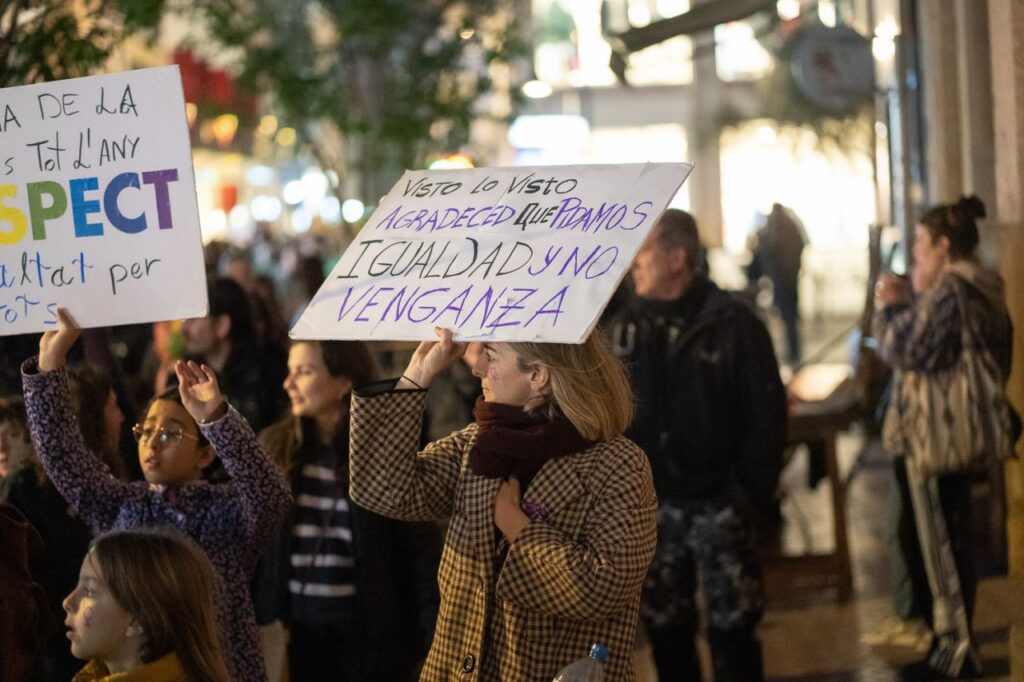 A DE LA
S TOT L'ANY
SPECT
altat per
tots
VISTO LO VISTO
AGRADECED QUE PIDAMOS
IGUALDAD Y NO
VENGANZA